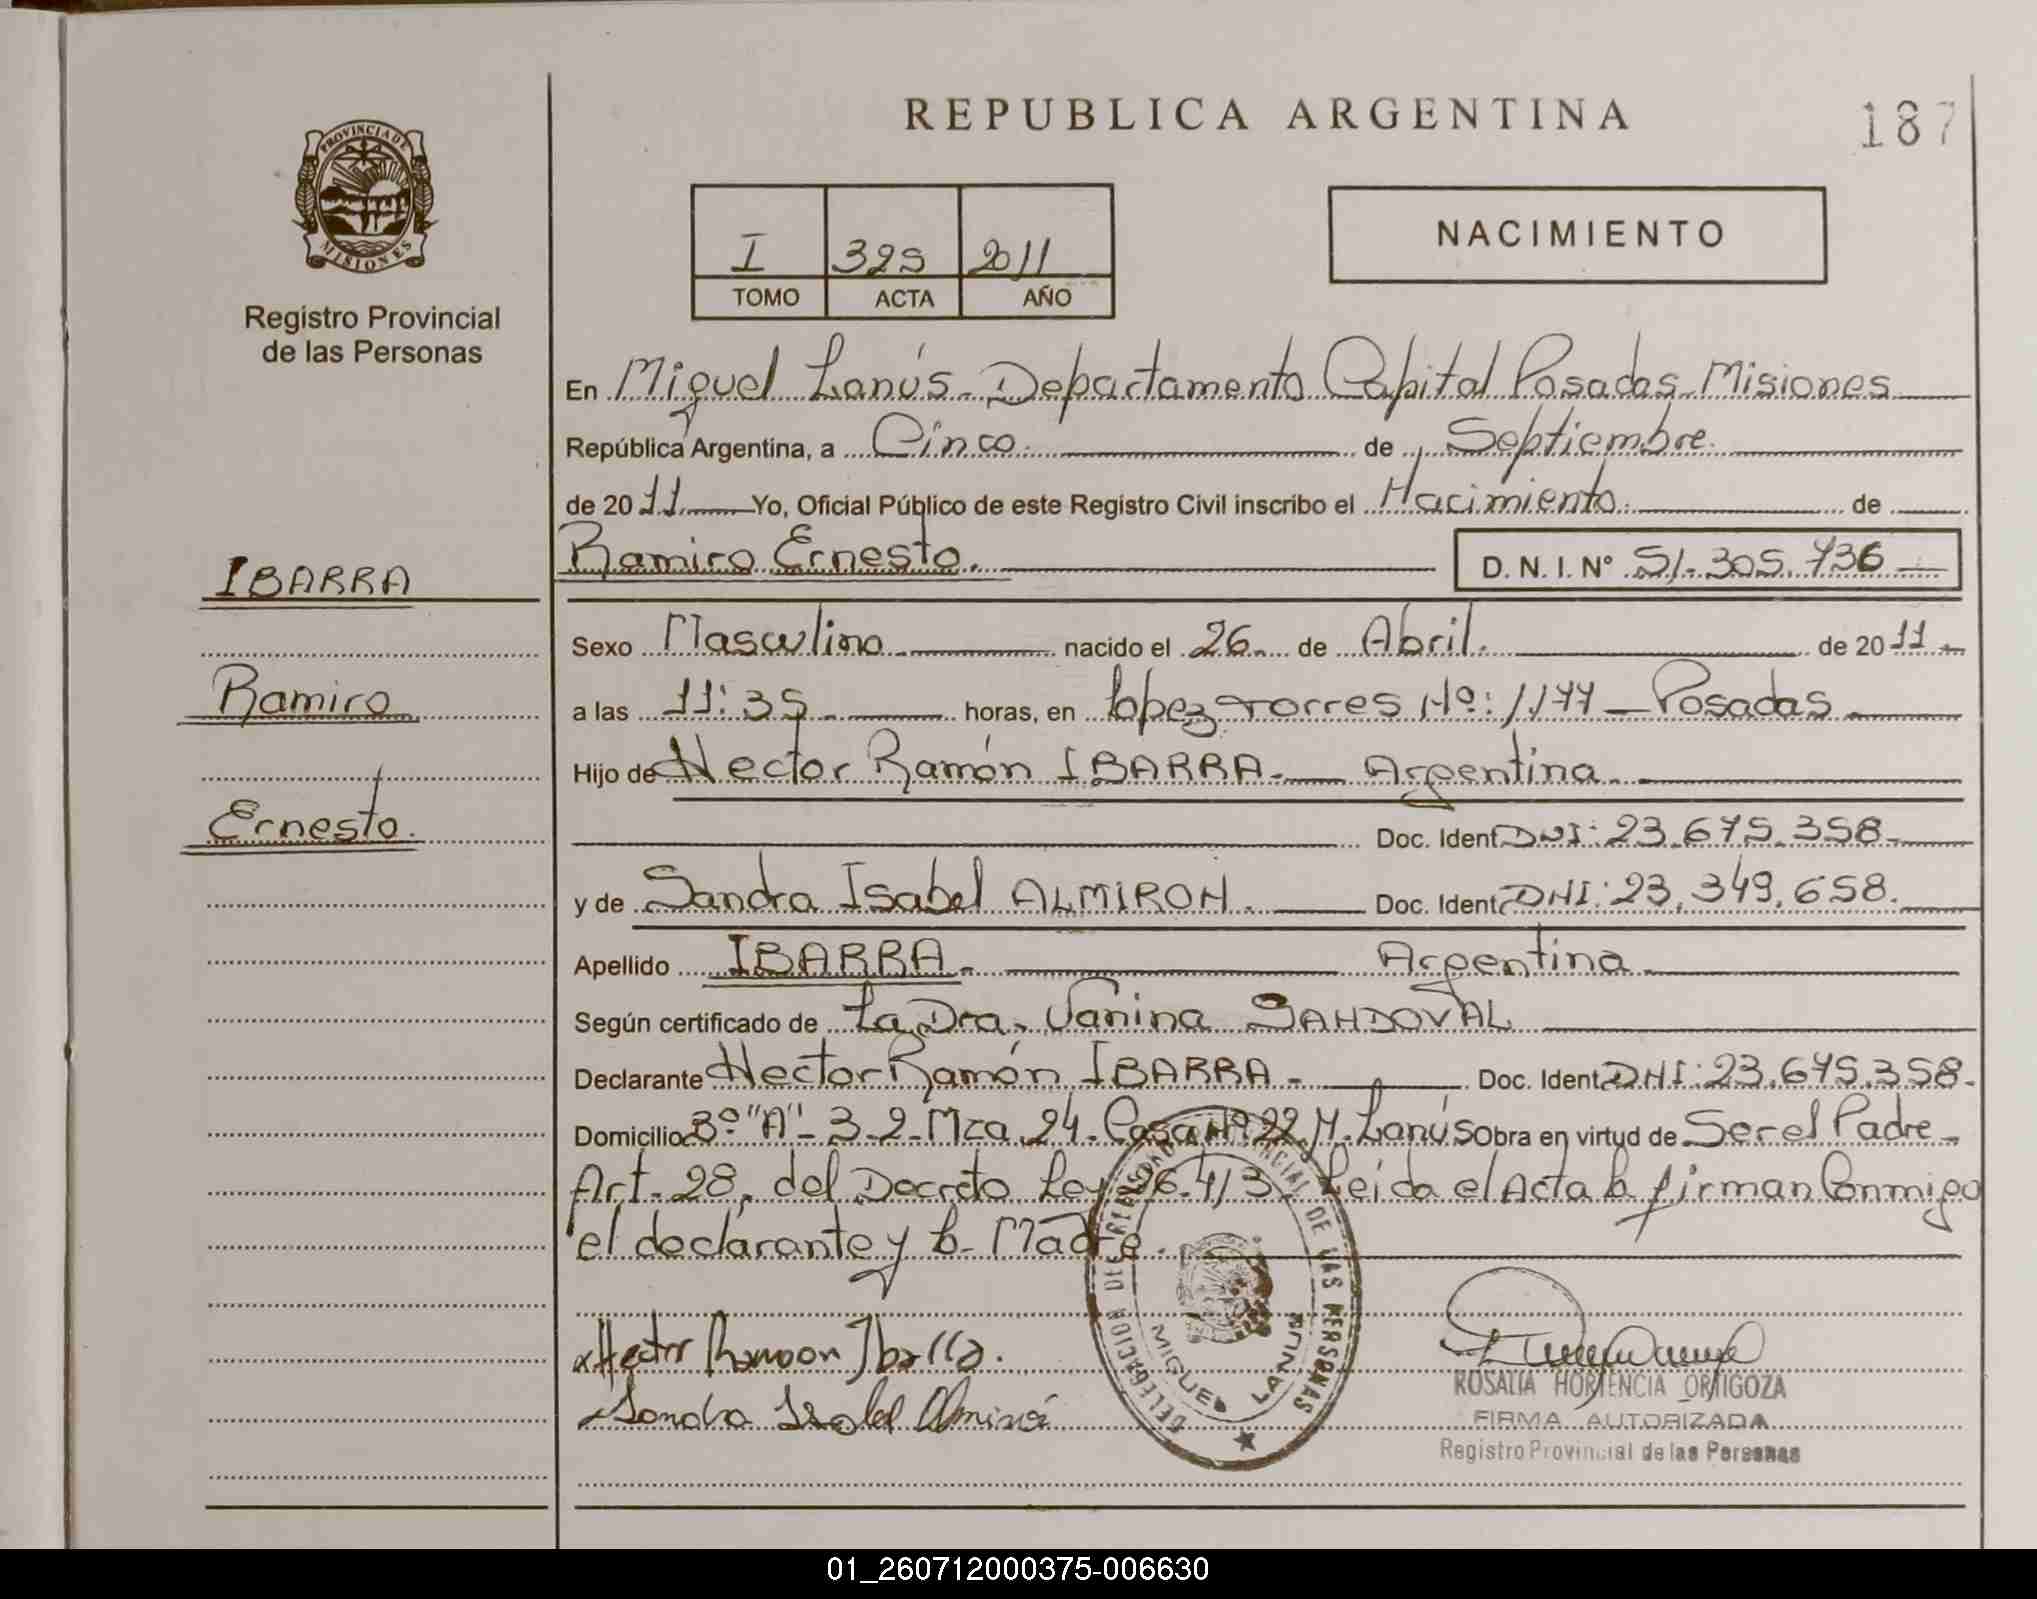 REPUBLICA ARGENTINA
187
PROVINCIA DE
MISIONES
Registro Provincial
de las Personas
I 325 2011
TOMO ACTA AÑO
NACIMIENTO
En Miguel Lanús - Departamento Capital Posadas - Misiones
República Argentina, a Cinco. de Septiembre.
de 2011 Yo, Oficial Público de este Registro Civil inscribo el Nacimiento. de
Ramiro Ernesto. D. N. I. N° 51.305.736
IBARRA
Sexo Masculino nacido el 26 de Abril. de 2011
Ramiro
a las 11:35 horas, en Lopez Torres Nº: 1177 - Posadas
Hijo de Hector Ramón IBARRA - Argentina
Ernesto.
Doc. Ident DNI: 23.675.358
y de Sandra Isabel ALMIRON. Doc. Ident DNI: 23.349.658.
Apellido IBARRA. Argentina
Según certificado de La Dra. Vanina SANDOVAL
Declarante Hector Ramón IBARRA - Doc. Ident DNI: 23.675.358.
Domicilio Bº "A" - 3-2 - Mza 24. Casa Nº 22 M. Lanús Obra en virtud de Ser el Padre -
Art. 28, del Decreto Ley 26.413. Leida el Acta la firman Conmigo
el declarante y la Madre.
Hector Ramon Ibarra.
Sandra Isabel Almirón
DELEGACION DEL REGISTRO PROVINCIAL DE LAS PERSONAS
MIGUEL LANUS
ROSALIA HORTENCIA ORTIGOZA
FIRMA AUTORIZADA
Registro Provincial de las Personas
01_260712000375-006630